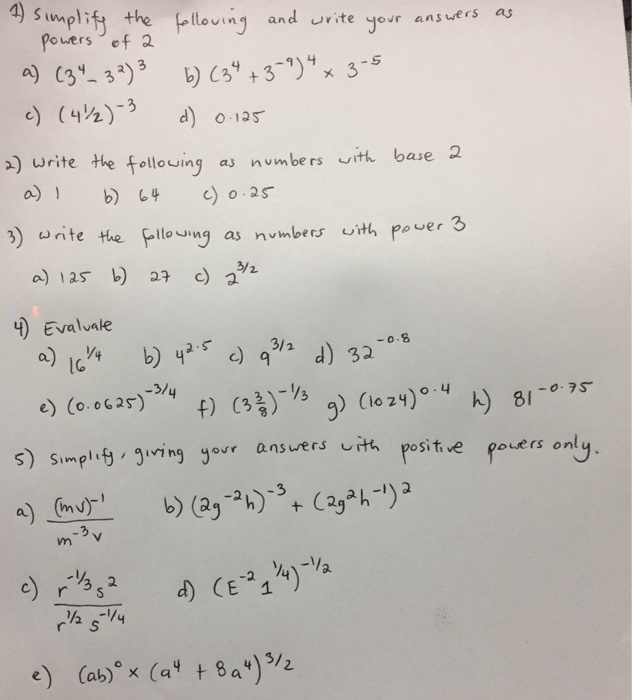 1) Simplify the following and write your answers as
powers of 2
a) (3⁴ - 3²)³ b) (3⁴ + 3⁻⁹)⁴ × 3⁻⁵
c) (4½)⁻³ d) 0.125
2) Write the following as numbers with base 2
a) 1 b) 64 c) 0.25
3) Write the following as numbers with power 3
a) 125 b) 27 c) 2^3/2
4) Evaluate
a) 16^1/4 b) 4^2.5 c) 9^3/2 d) 32^-0.8
e) (0.0625)^-3/4 f) (3 3/8)^-1/3 g) (1024)^0.4 h) 81^-0.75
5) Simplify, giving your answers with positive powers only.
a) (mv)⁻¹ / m⁻³v b) (2g⁻²h)⁻³ + (2g²h⁻¹)²
c) r^-1/3 s² / r^1/2 s^-1/4 d) (E⁻² 1^1/4)^-1/2
e) (ab)⁰ × (a⁴ + 8a⁴)^3/2